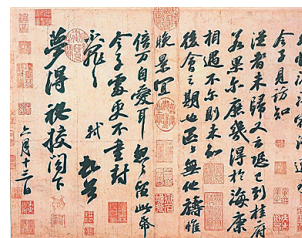 令子見訪知
從者未歸又云恐已到桂府
若果爾庶幾得於海康
相遇不爾則未知
後會之期也區區無他禱惟
晚景宜
倍萬自愛耳忽忽留此帋
令子處更不重封
不罪不罪 軾頓首
夢得祕校閣下
六月十三日